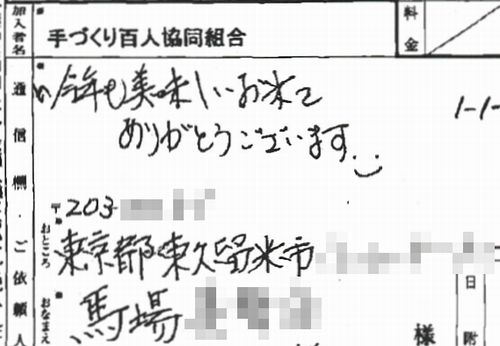 加入者名
手づくり百人協同組合
料金
通信欄・ご依頼人
今年も美味しいお米を
ありがとうございます
1-1-
〒203-
おところ
東京都東久留米市
おなまえ
馬場
様
日附